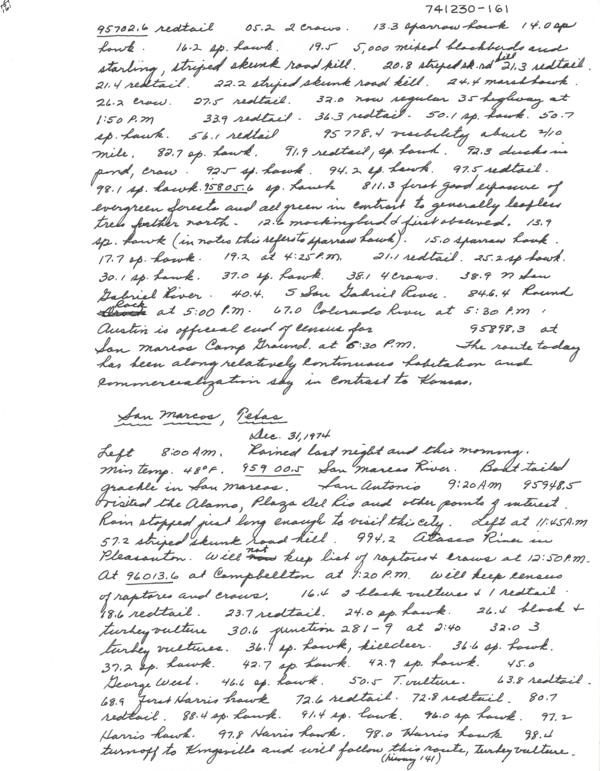 741230-161
95702.6 redtail 05.2 2 crows. 13.3 sparrow hawk 14.0 sp
hawk. 16.2 sp. hawk. 19.5 5,000 mixed blackbirds and
starling, striped skunk road kill. 20.8 striped sk. rd kill 21.3 redtail.
21.4 redtail. 22.2 striped skunk road kill. 24.4 marsh hawk.
26.2 crow. 27.5 redtail. 32.0 now regular 35 highway at
1:50 P.M 33.9 redtail. 36.3 redtail. 50.1 sp. hawk. 50.7
sp. hawk. 56.1 redtail 95778.4 visibility about 2/10
mile. 82.7 sp. hawk. 91.9 redtail, sp. hawk. 92.3 ducks in
pond, crow. 92.5 sp. hawk. 94.2 sp. hawk. 97.5 redtail.
98.1 sp. hawk. 95805.6 sp. hawk 811.3 first good exposure of
evergreen forests and all green in contrast to generally leafless
trees further north. 12.6 mockingbird first observed. 13.9
sp. hawk (in notes this refers to sparrow hawk). 15.0 sparrow hawk.
17.7 sp. hawk. 19.2 at 4:25 P.M. 21.1 redtail. 25.2 sp. hawk.
30.1 sp. hawk. 37.0 sp. hawk. 38.1 4 crows. 38.9 N San
Gabriel River. 40.4. S San Gabriel River. 846.4 Round
Rock at 5:00 P.M. 67.0 Colorado River at 5:30 P.M.
Austin is official end of census for 95898.3 at
San Marcos Camp Ground. at 6:30 P.M. The route today
has been along relatively continuous habitation and
commercialization say in contrast to Kansas.
San Marcos, Texas
Dec. 31, 1974
Left 8:00 A.M. Rained last night and this morning.
Min temp. 48°F. 959 00.5 San Marcos River. Boat tailed
grackle in San Marcos. San Antonio 9:20 A.M 95948.5
visited the Alamo, Plaza Del Rio and other points of interest.
Rain stopped just long enough to visit this city. Left at 11:45 A.M
57.2 striped skunk road kill. 994.2 Atasco River in
Pleasanton. Will not keep list of raptores & crows at 12:50 P.M.
At 96013.6 at Campbellton at 1:20 P.M. will keep census
of raptores and crows. 16.4 2 black vultures & 1 redtail.
18.6 redtail. 23.7 redtail. 24.0 sp. hawk. 26.4 black &
turkey vulture 30.6 junction 281-9 at 2:40 32.0 3
turkey vultures. 36.1 sp. hawk, killdeer. 36.6 sp. hawk.
37.2 sp. hawk. 42.7 sp. hawk. 42.9 sp. hawk. 45.0
George West. 46.6 sp. hawk. 50.5 T. vulture. 63.8 redtail.
68.9 first Harris hawk 72.6 redtail. 72.8 redtail. 80.7
redtail. 88.4 sp. hawk. 91.4 sp. hawk. 96.0 sp hawk. 97.2
Harris hawk. 97.8 Harris hawk. 98.0 Harris hawk 98.4
turnoff to Kingsville and will follow this route, turkey vulture.
(hiway 141)